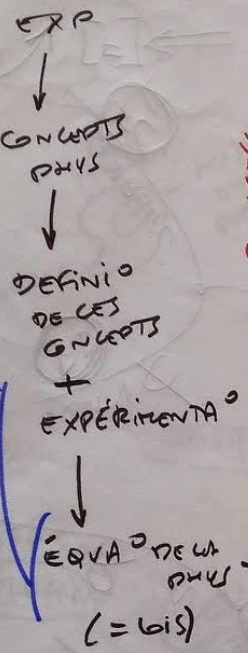 EXP
CONCEPTS
PHYS
DÉFINI°
DE CES
CONCEPTS
+
EXPÉRIMENTA°
ÉQUA° DE LA
PHYS
(= lois)